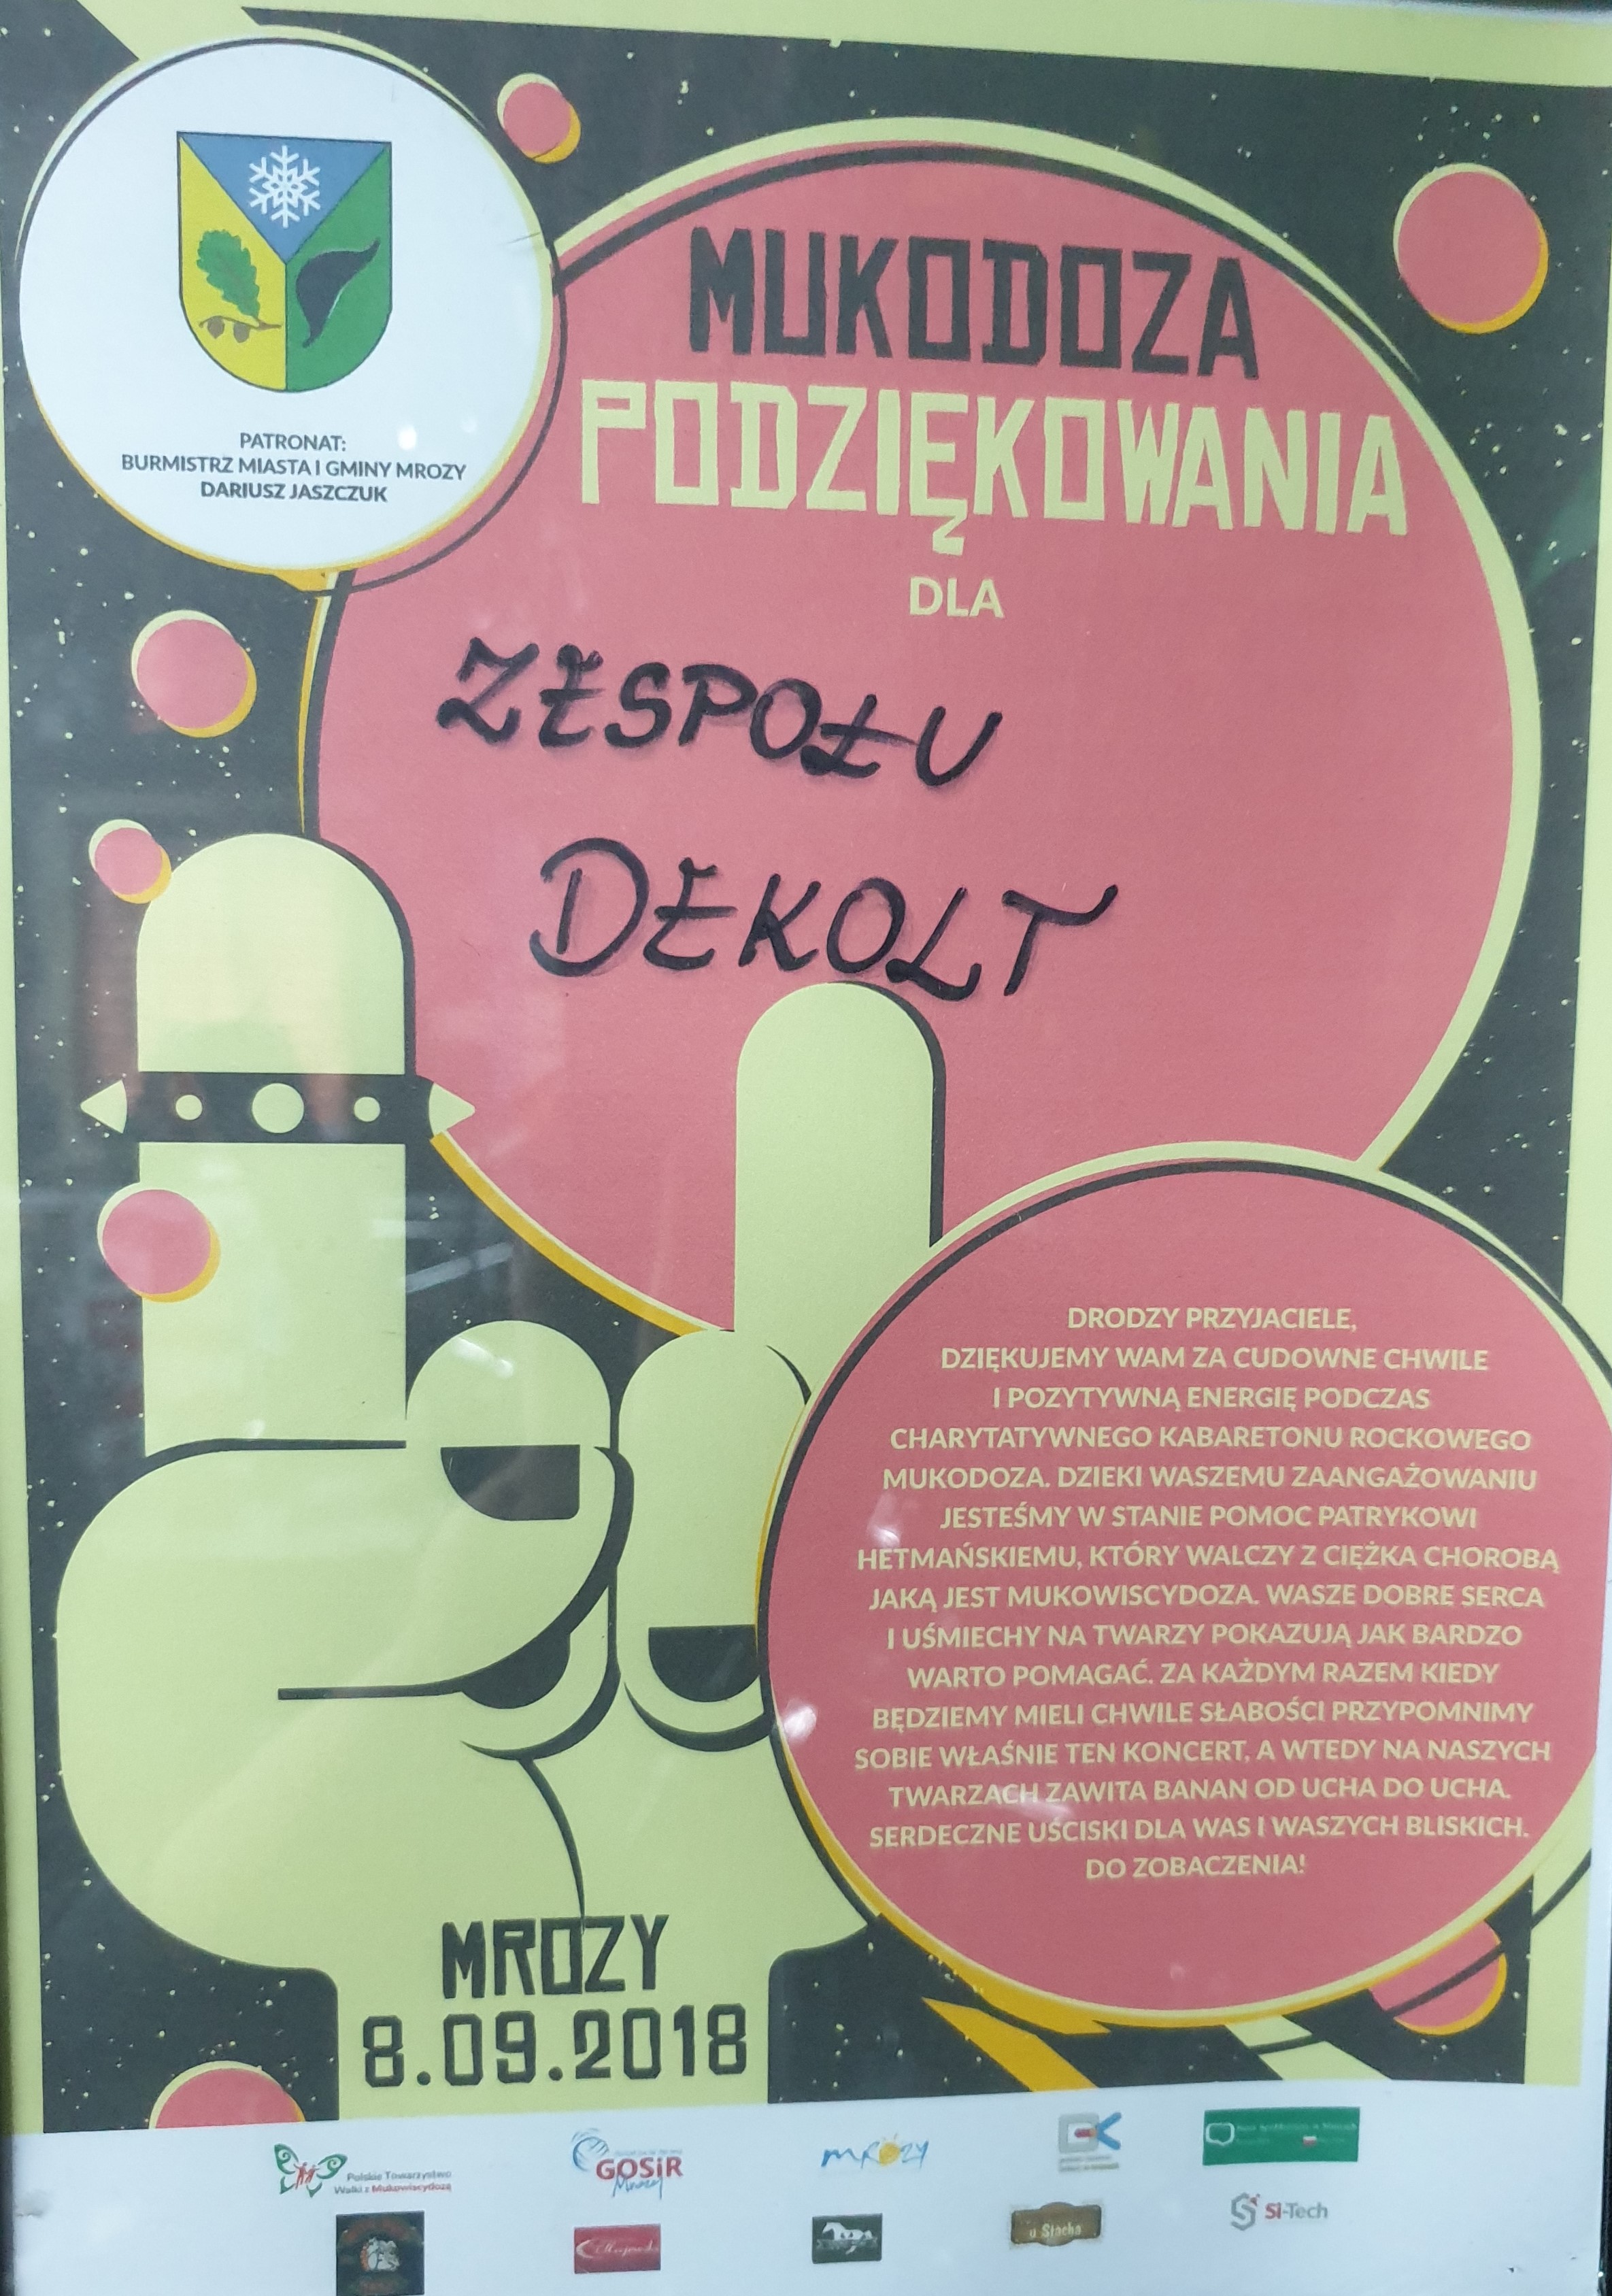 PATRONAT:
BURMISTRZ MIASTA I GMINY MROZY
DARIUSZ JASZCZUK
MUKODOZA
PODZIĘKOWANIA
DLA
ZESPOŁU
DEKOLT
DRODZY PRZYJACIELE,
DZIĘKUJEMY WAM ZA CUDOWNE CHWILE
I POZYTYWNĄ ENERGIĘ PODCZAS
CHARYTATYWNEGO KABARETONU ROCKOWEGO
MUKODOZA. DZIEKI WASZEMU ZAANGAŻOWANIU
JESTEŚMY W STANIE POMOC PATRYKOWI
HETMAŃSKIEMU, KTÓRY WALCZY Z CIĘŻKA CHOROBĄ
JAKĄ JEST MUKOWISCYDOZA. WASZE DOBRE SERCA
I UŚMIECHY NA TWARZY POKAZUJĄ JAK BARDZO
WARTO POMAGAĆ. ZA KAŻDYM RAZEM KIEDY
BĘDZIEMY MIELI CHWILE SŁABOŚCI PRZYPOMNIMY
SOBIE WŁAŚNIE TEN KONCERT, A WTEDY NA NASZYCH
TWARZACH ZAWITA BANAN OD UCHA DO UCHA.
SERDECZNE UŚCISKI DLA WAS I WASZYCH BLISKICH.
DO ZOBACZENIA!
MROZY
8.09.2018
Polskie Towarzystwo
Walki z Mukowiscydozą
GOSiR
Mrozy
mrozy
GCK
u Stacha
Si-Tech